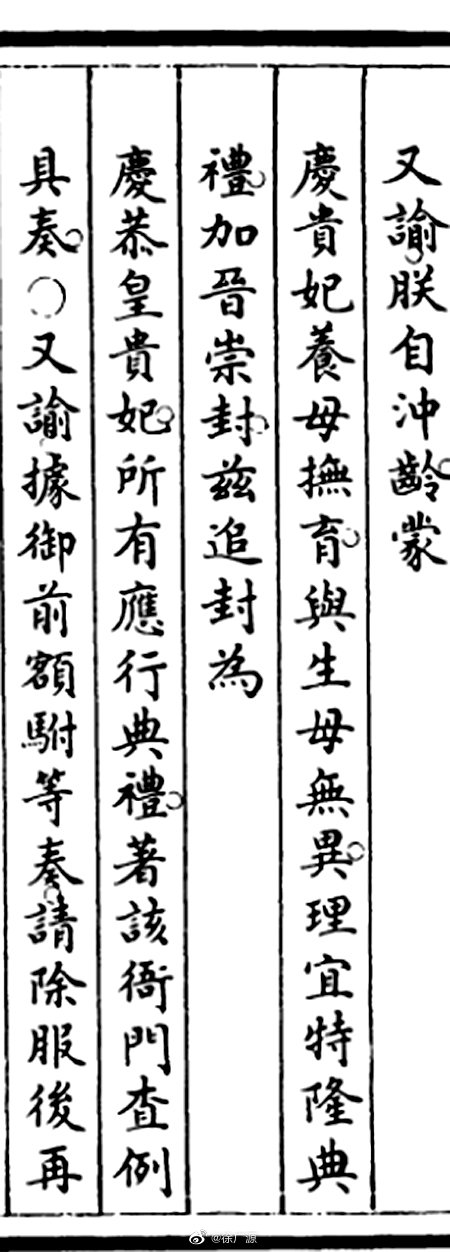 又諭朕自沖齡蒙
慶貴妃養母撫育與生母無異理宜特隆典
禮加晉崇封茲追封為
慶恭皇貴妃所有應行典禮著該衙門查例
具奏○又諭據御前額駙等奏請除服後再
@徐广源